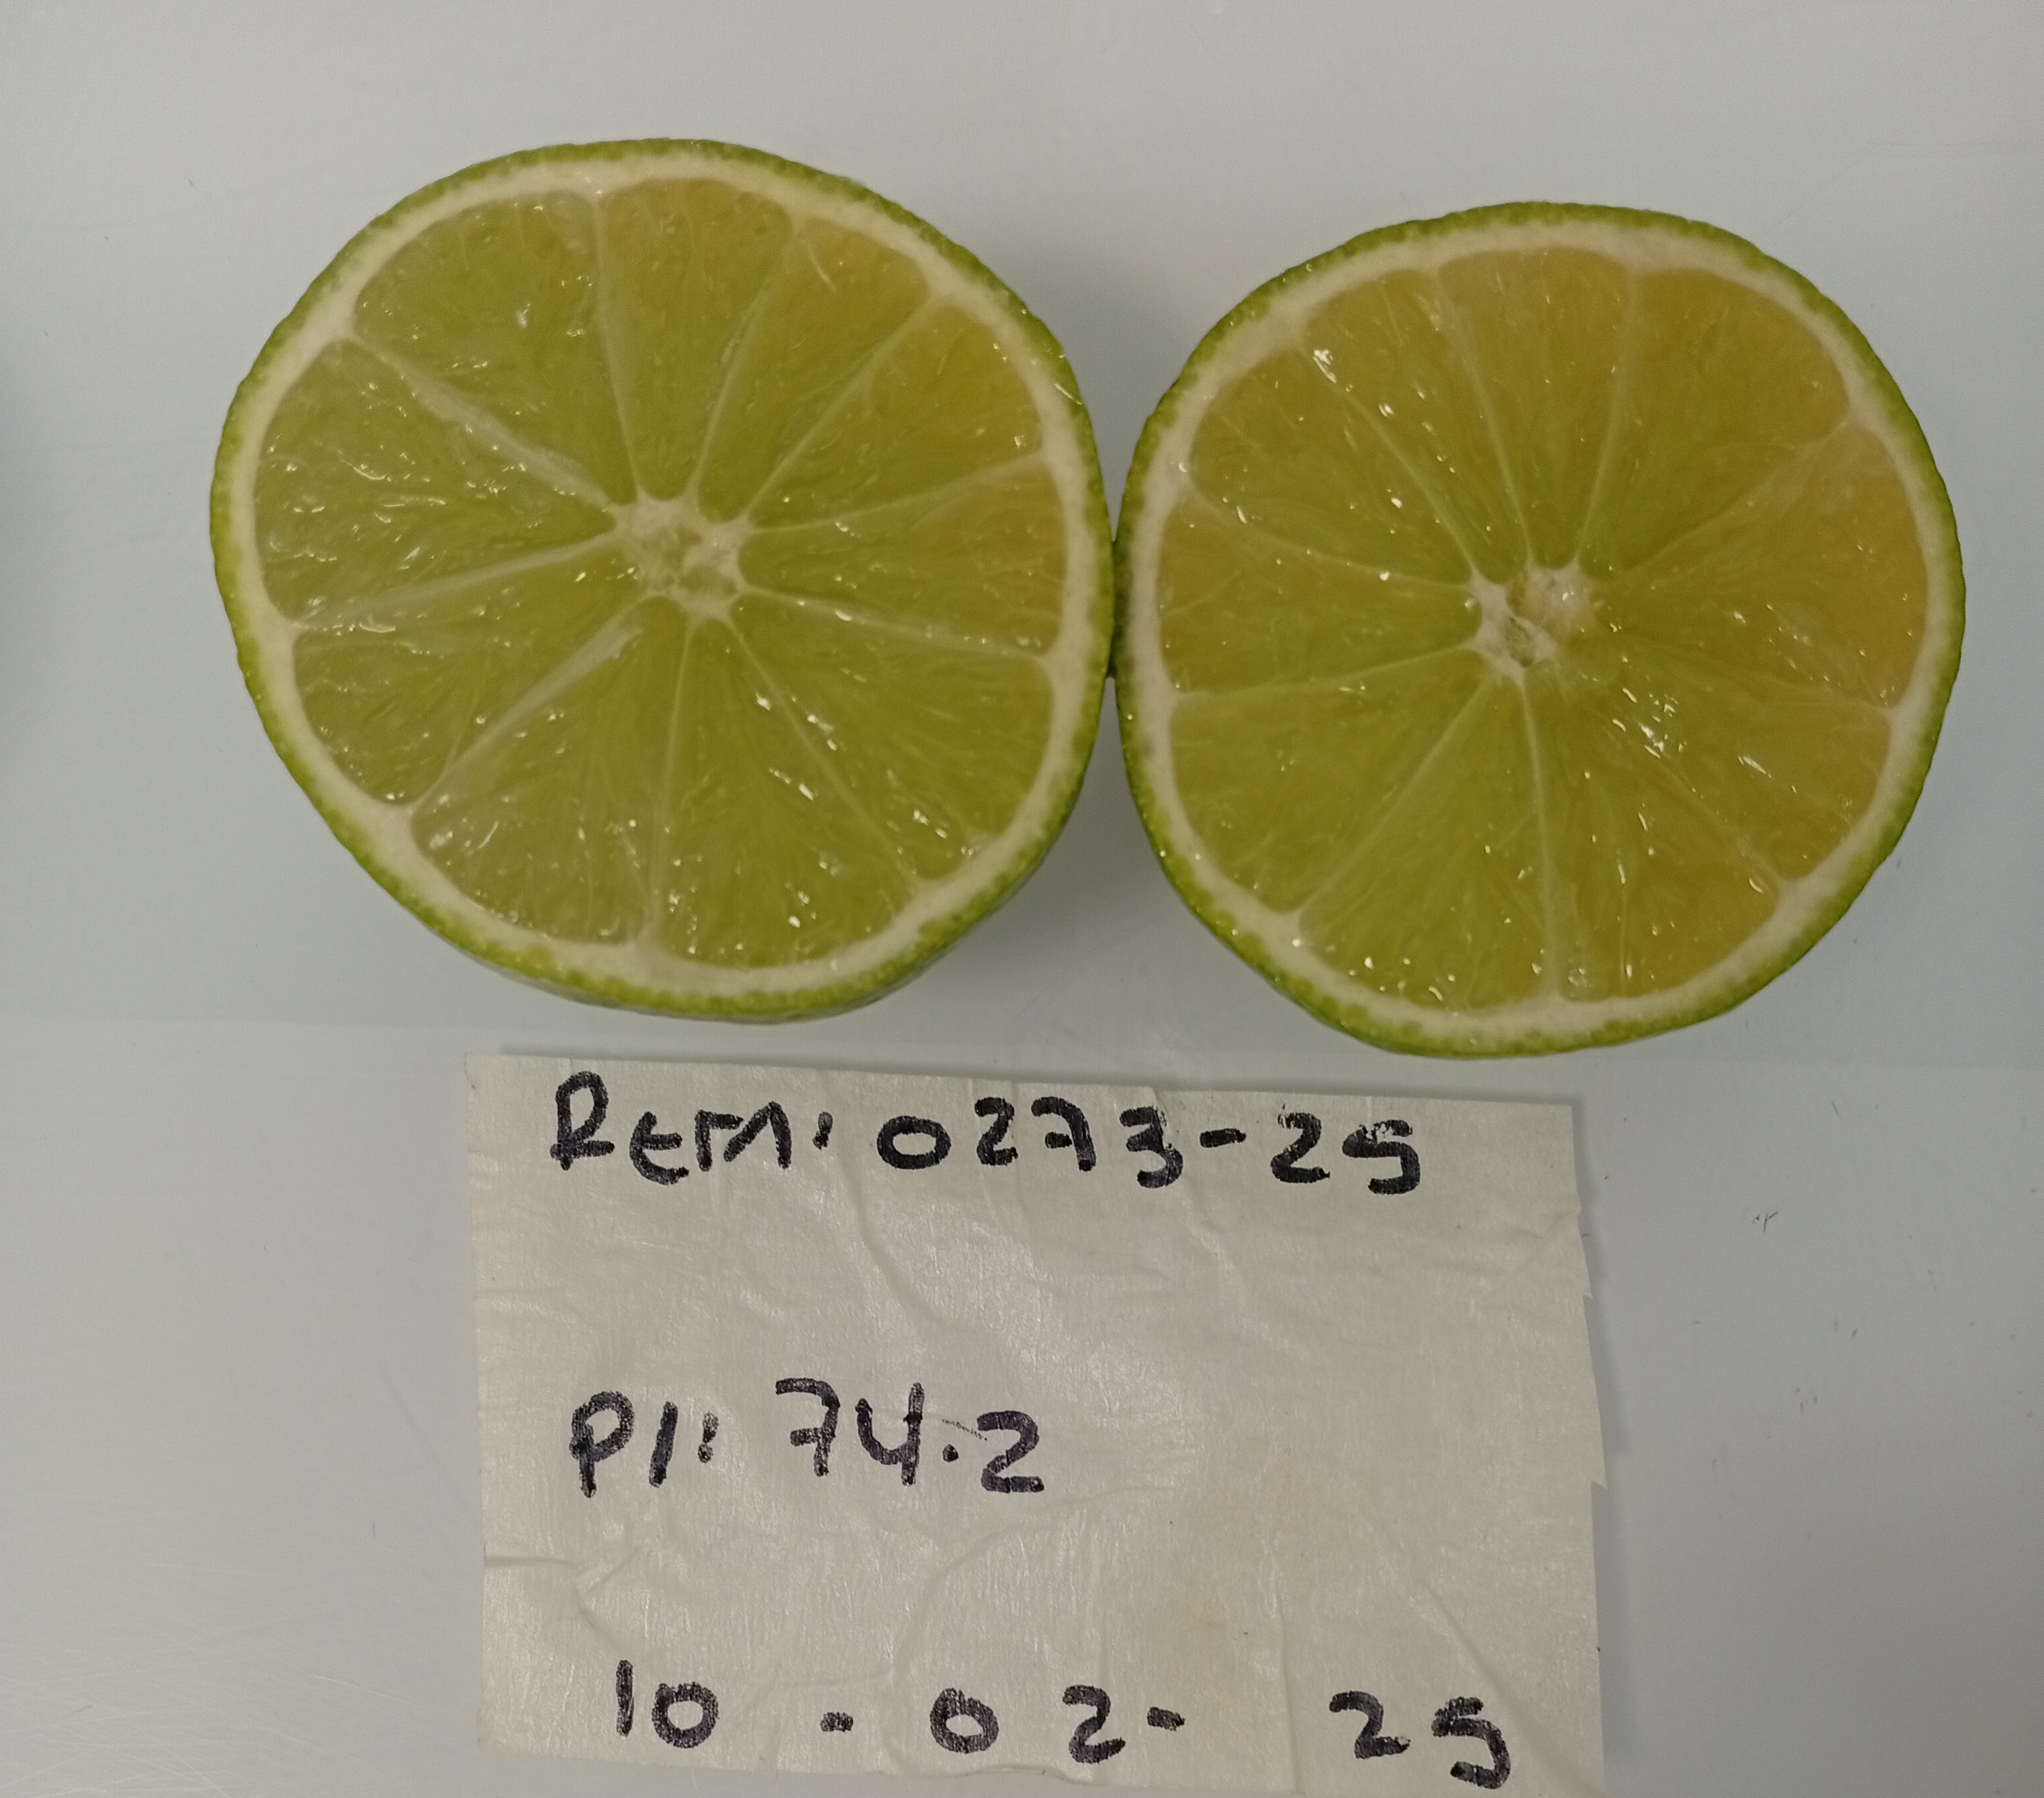 REM: 0273-25
PI: 74.2
10-02-25